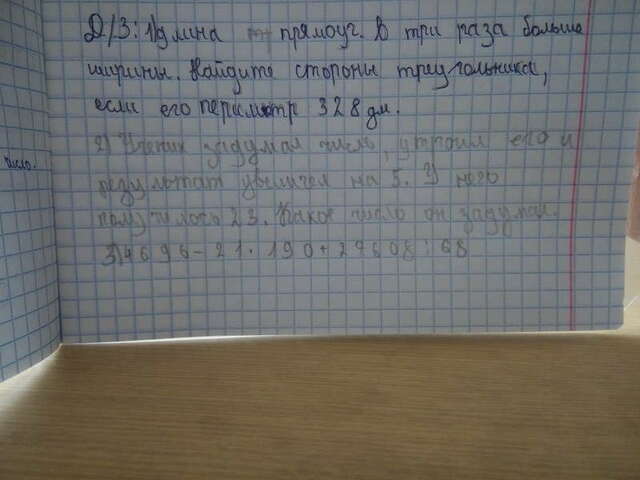 Д/З: 1) Длина прямоуг. в три раза больше
ширины. Найдите стороны треугольника,
если его периметр 328 дм.
2) Ученик задумал число, утроил его и
результат увеличел на 5. У него
получилось 23. Какое число он задумал.
3) 4696-21·190+27608:68
число.